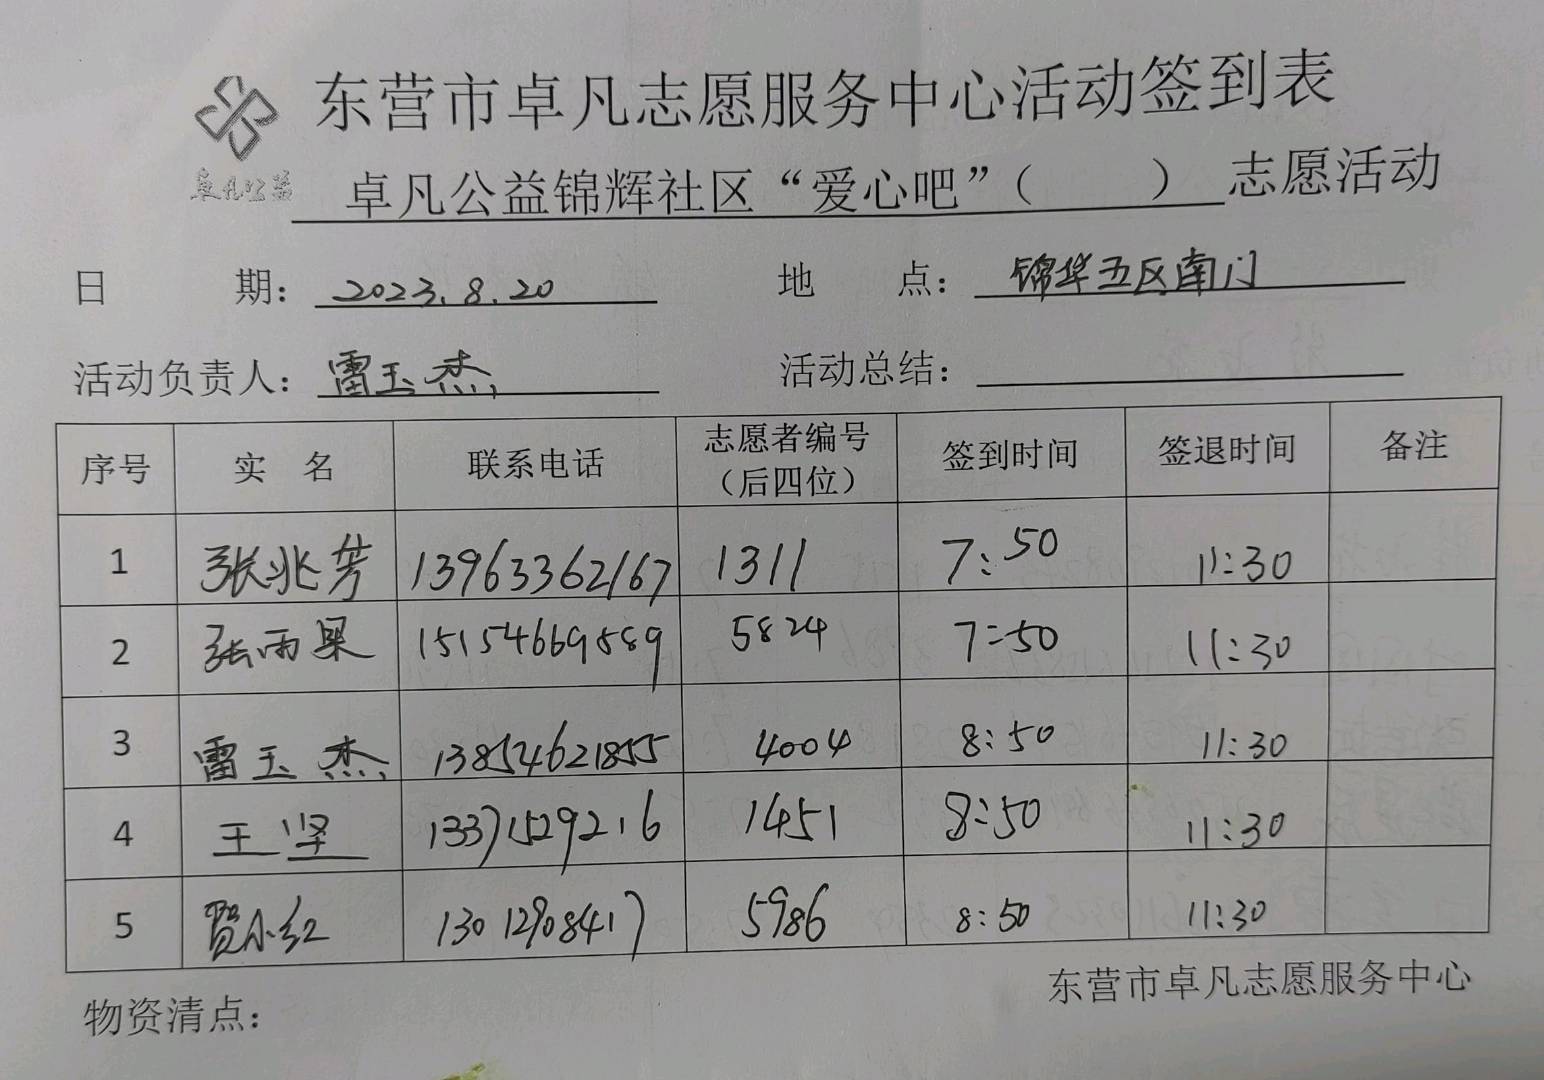 东营市卓凡志愿服务中心活动签到表
卓凡公益
卓凡公益锦辉社区“爱心吧”（ ）志愿活动
日 期：2023.8.20 地 点：锦华五区南门
活动负责人：雷玉杰 活动总结：
序号 实 名 联系电话 志愿者编号（后四位） 签到时间 签退时间 备注
1 张兆芳 13963362167 1311 7:50 11:30
2 张雨果 15154669889 5824 7:50 11:30
3 雷玉杰 13854621855 4004 8:50 11:30
4 王坚 13371529216 1451 8:50 11:30
5 贾小红 13012908417 5986 8:50 11:30
物资清点： 东营市卓凡志愿服务中心